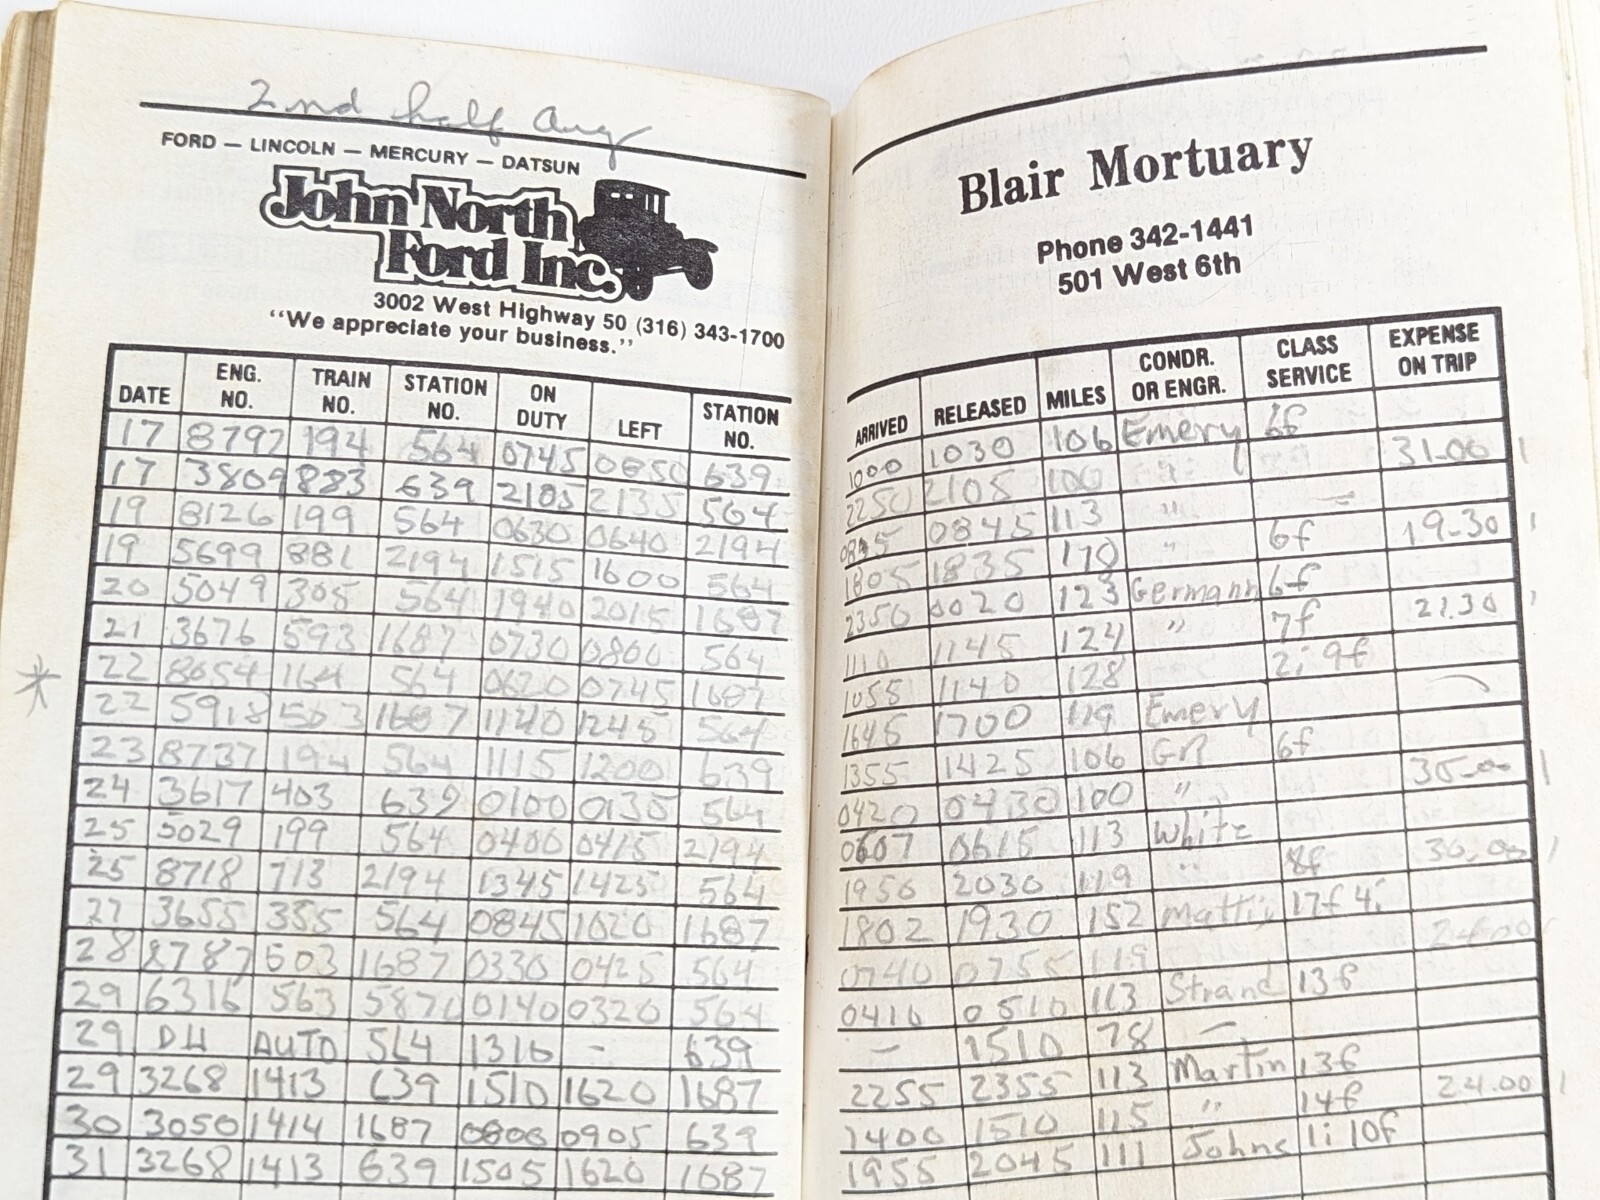 2nd half Aug
FORD — LINCOLN — MERCURY — DATSUN
John North
Ford Inc.
3002 West Highway 50 (316) 343-1700
"We appreciate your business."
DATE ENG. NO. TRAIN NO. STATION NO. ON DUTY LEFT STATION NO.
17 8797 194 564 0745 0850 639
17 3809 883 639 2105 2135 564
19 8126 199 564 0630 0640 2194
19 5699 881 2194 1515 1600 564
20 5049 305 564 1940 2015 1687
21 3676 593 1687 0730 0800 564
22 8654 164 564 0620 0745 1687
22 5918 503 1687 1140 1245 564
23 8737 194 564 1115 1200 639
24 3617 403 639 0100 0135 564
25 5029 199 564 0400 0415 2194
25 8718 713 2194 1345 1425 564
27 3655 355 564 0845 1020 1687
28 8787 603 1687 0330 0425 564
29 6316 563 5876 0140 0320 564
29 DH AUTO 564 1316 - 639
29 3268 1413 639 1510 1620 1687
30 3050 1414 1687 0800 0905 639
31 3268 1413 639 1505 1620 1687
Blair Mortuary
Phone 342-1441
501 West 6th
ARRIVED RELEASED MILES CONDR. OR ENGR. CLASS SERVICE EXPENSE ON TRIP
1000 1030 106 Emery 6f
2250 2105 100 " 31.00
0845 113 "
1805 1835 170 " 6f 19.30
2350 0020 123 Germann 6f
1110 1145 124 " 7f 21.30
1055 1140 128 2i 9f
1645 1700 119 Emery
1355 1425 106 GR 6f
0420 0430 100 " 30.00
0607 0615 113 White
1950 2030 119 " 8f 30.00
1802 1930 152 17f 4i
0740 0755 119 24.00
0416 0510 113 Strand 13f
- 1510 78 -
2255 2355 113 Martin 13f
1400 1510 115 " 14f 24.00
1955 2045 111 Johns 1i 10f